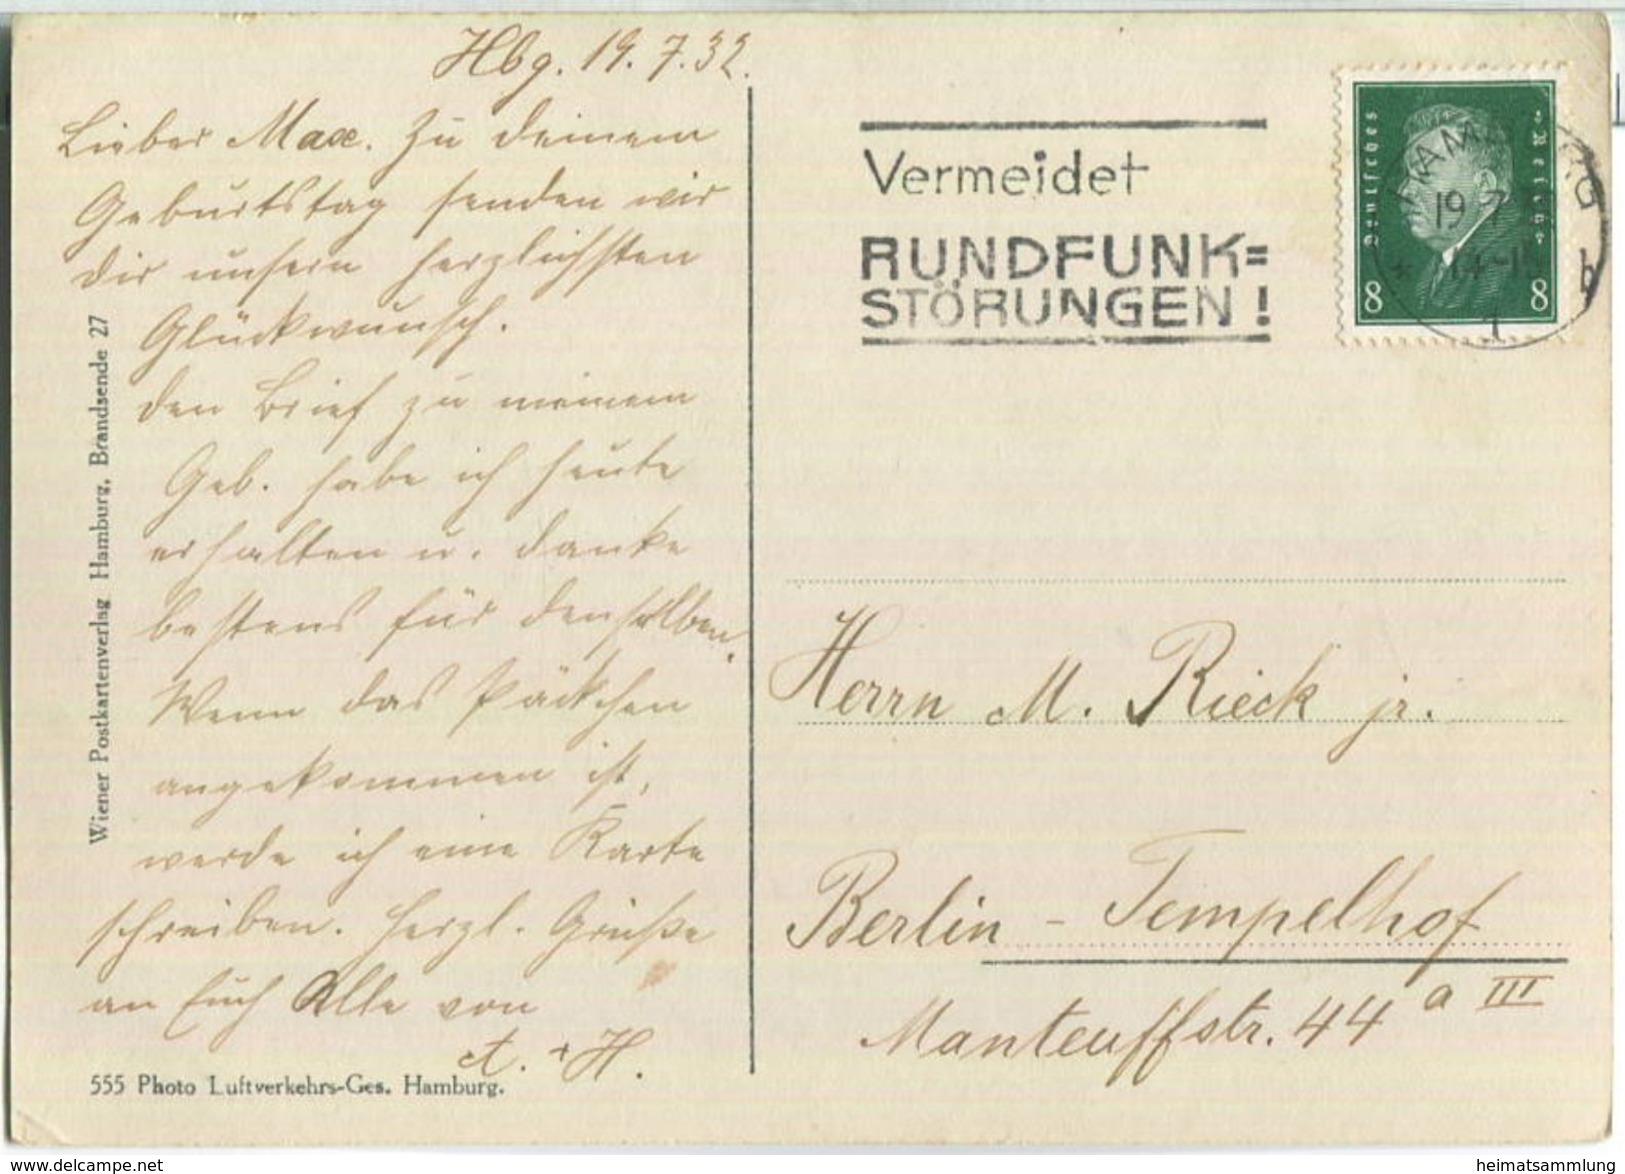 Hbg. 19.7.32.
Lieber Max. Zu deinem
Geburtstag senden wir
dir unsern herzlichsten
Glückwunsch.
den Brief zu meinem
Geb. habe ich heute
erhalten u. danke
bestens für denselben.
Wenn das Päckchen
angekommen ist,
werde ich eine Karte
schreiben. Herzl. Grüße
an Euch Alle von
A. + H.
555 Photo Luftverkehrs-Ges. Hamburg.
Wiener Postkartenverlag Hamburg, Brandsende 27
Vermeidet
RUNDFUNK=
STÖRUNGEN!
Deutsches
Reich
8 8
19 7
1
b
Herrn M. Rieck jr.
Berlin - Tempelhof
Manteuffstr. 44 a III
www.delcampe.net
heimatsammlung